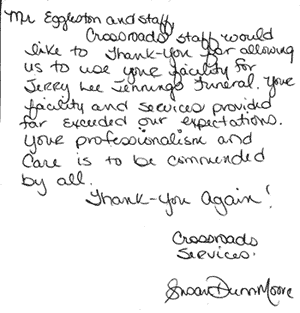 Mr Eggleston and staff,
Crossroads staff would
like to Thank-You for allowing
us to use your facility for
Jerry Lee Jennings Funeral. Your
facility and services provided
far exceeded our expectations.
Your professionalism and
Care is to be commended
by all.
Thank-You Again!
Crossroads
Services.
Susan Dunn Moore